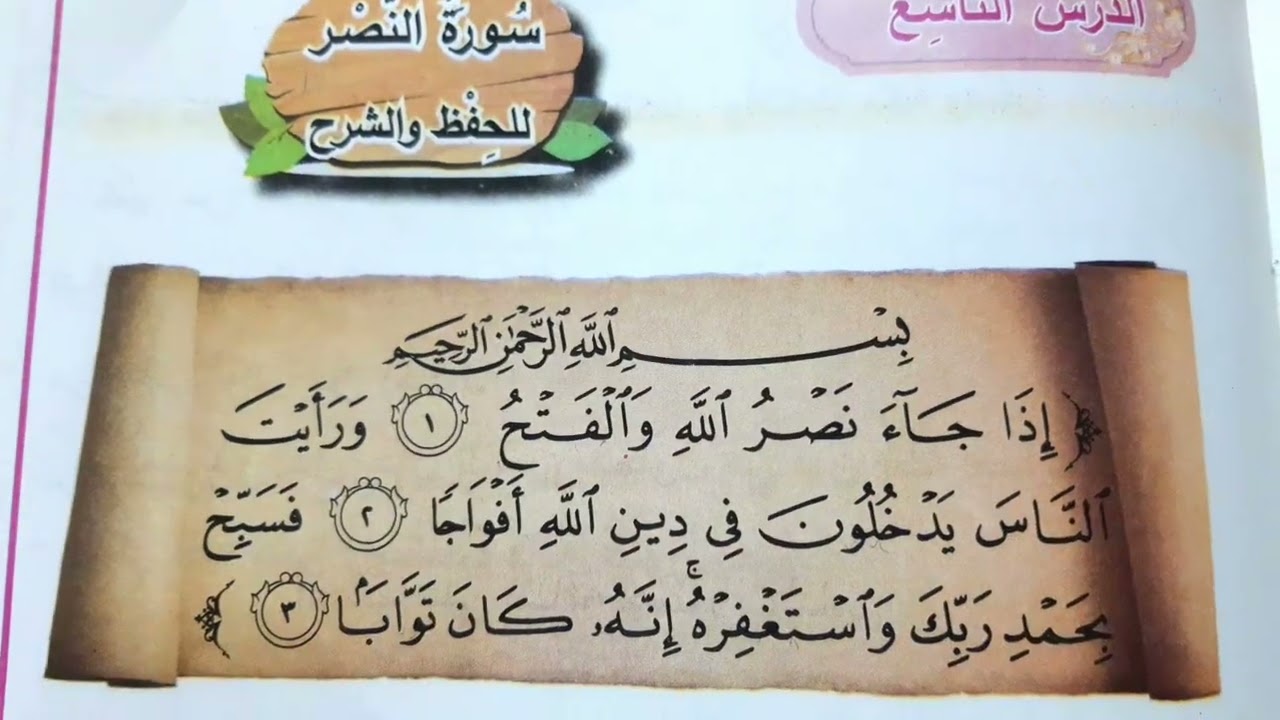 الدرس التاسع
سُورَةُ النَّصْر
للحِفْظ والشرح
بِسْمِ ٱللَّهِ ٱلرَّحْمَٰنِ ٱلرَّحِيمِ
﴿ إِذَا جَآءَ نَصْرُ ٱللَّهِ وَٱلْفَتْحُ ١ وَرَأَيْتَ
ٱلنَّاسَ يَدْخُلُونَ فِي دِينِ ٱللَّهِ أَفْوَاجًا ٢ فَسَبِّحْ
بِحَمْدِ رَبِّكَ وَٱسْتَغْفِرْهُۚ إِنَّهُۥ كَانَ تَوَّابَۢا ٣ ﴾